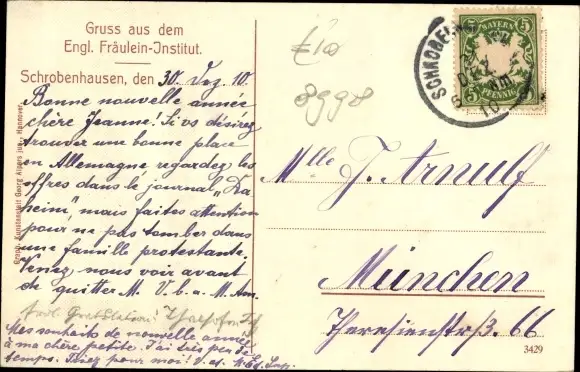 Gruss aus dem
Engl. Fräulein-Institut.
Schrobenhausen, den 30. Dez. 10.
Bonne nouvelle année
chère Jeanne! Si vs désirez
trouver une bonne place
en Allemagne, regardez les
offres dans le journal „Da
heim", mais faites attention
pour ne pas tomber dans
une famille protestante.
Venez nous voir avant
de quitter M. V. b. a. M. Am.
Gratulation!
Mes souhaits de nouvelle année
à ma chère petite. J'ai très peu de
temps. Priez pour moi! V. et.
Graph. Kunstanstalt Georg Alpers jun., Hannover.
8998
SCHROBENHAUSEN
DEZ
10
BAYERN
5 5
PFENNIG
Mlle J. Arnulf
München
Theresienstrß. 66
3429